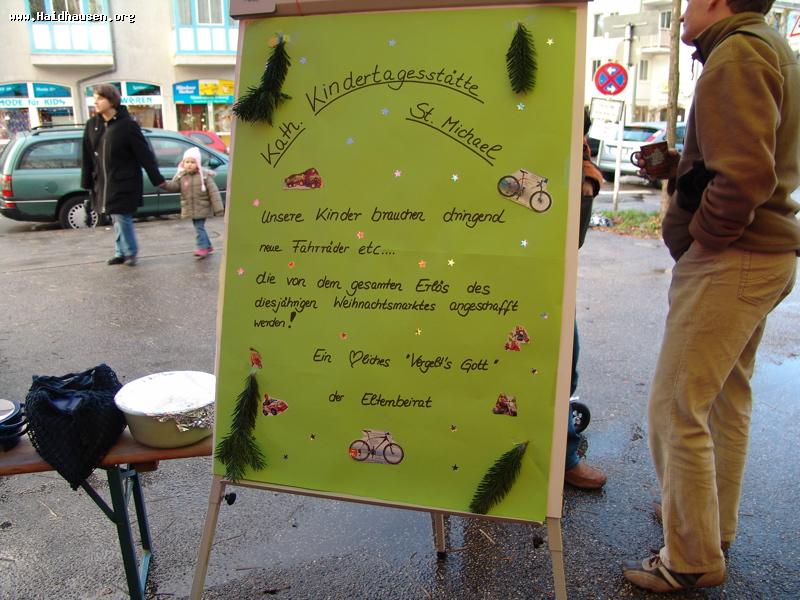 www.Haidhausen.org
Kath. Kindertagesstätte
St. Michael
Unsere Kinder brauchen dringend
neue Fahrräder etc....
die von dem gesamten Erlös des
diesjährigen Weihnachtsmarktes angeschafft
werden!
Ein ♡liches "Vergelt's Gott"
der Elternbeirat
MODE für KIDS